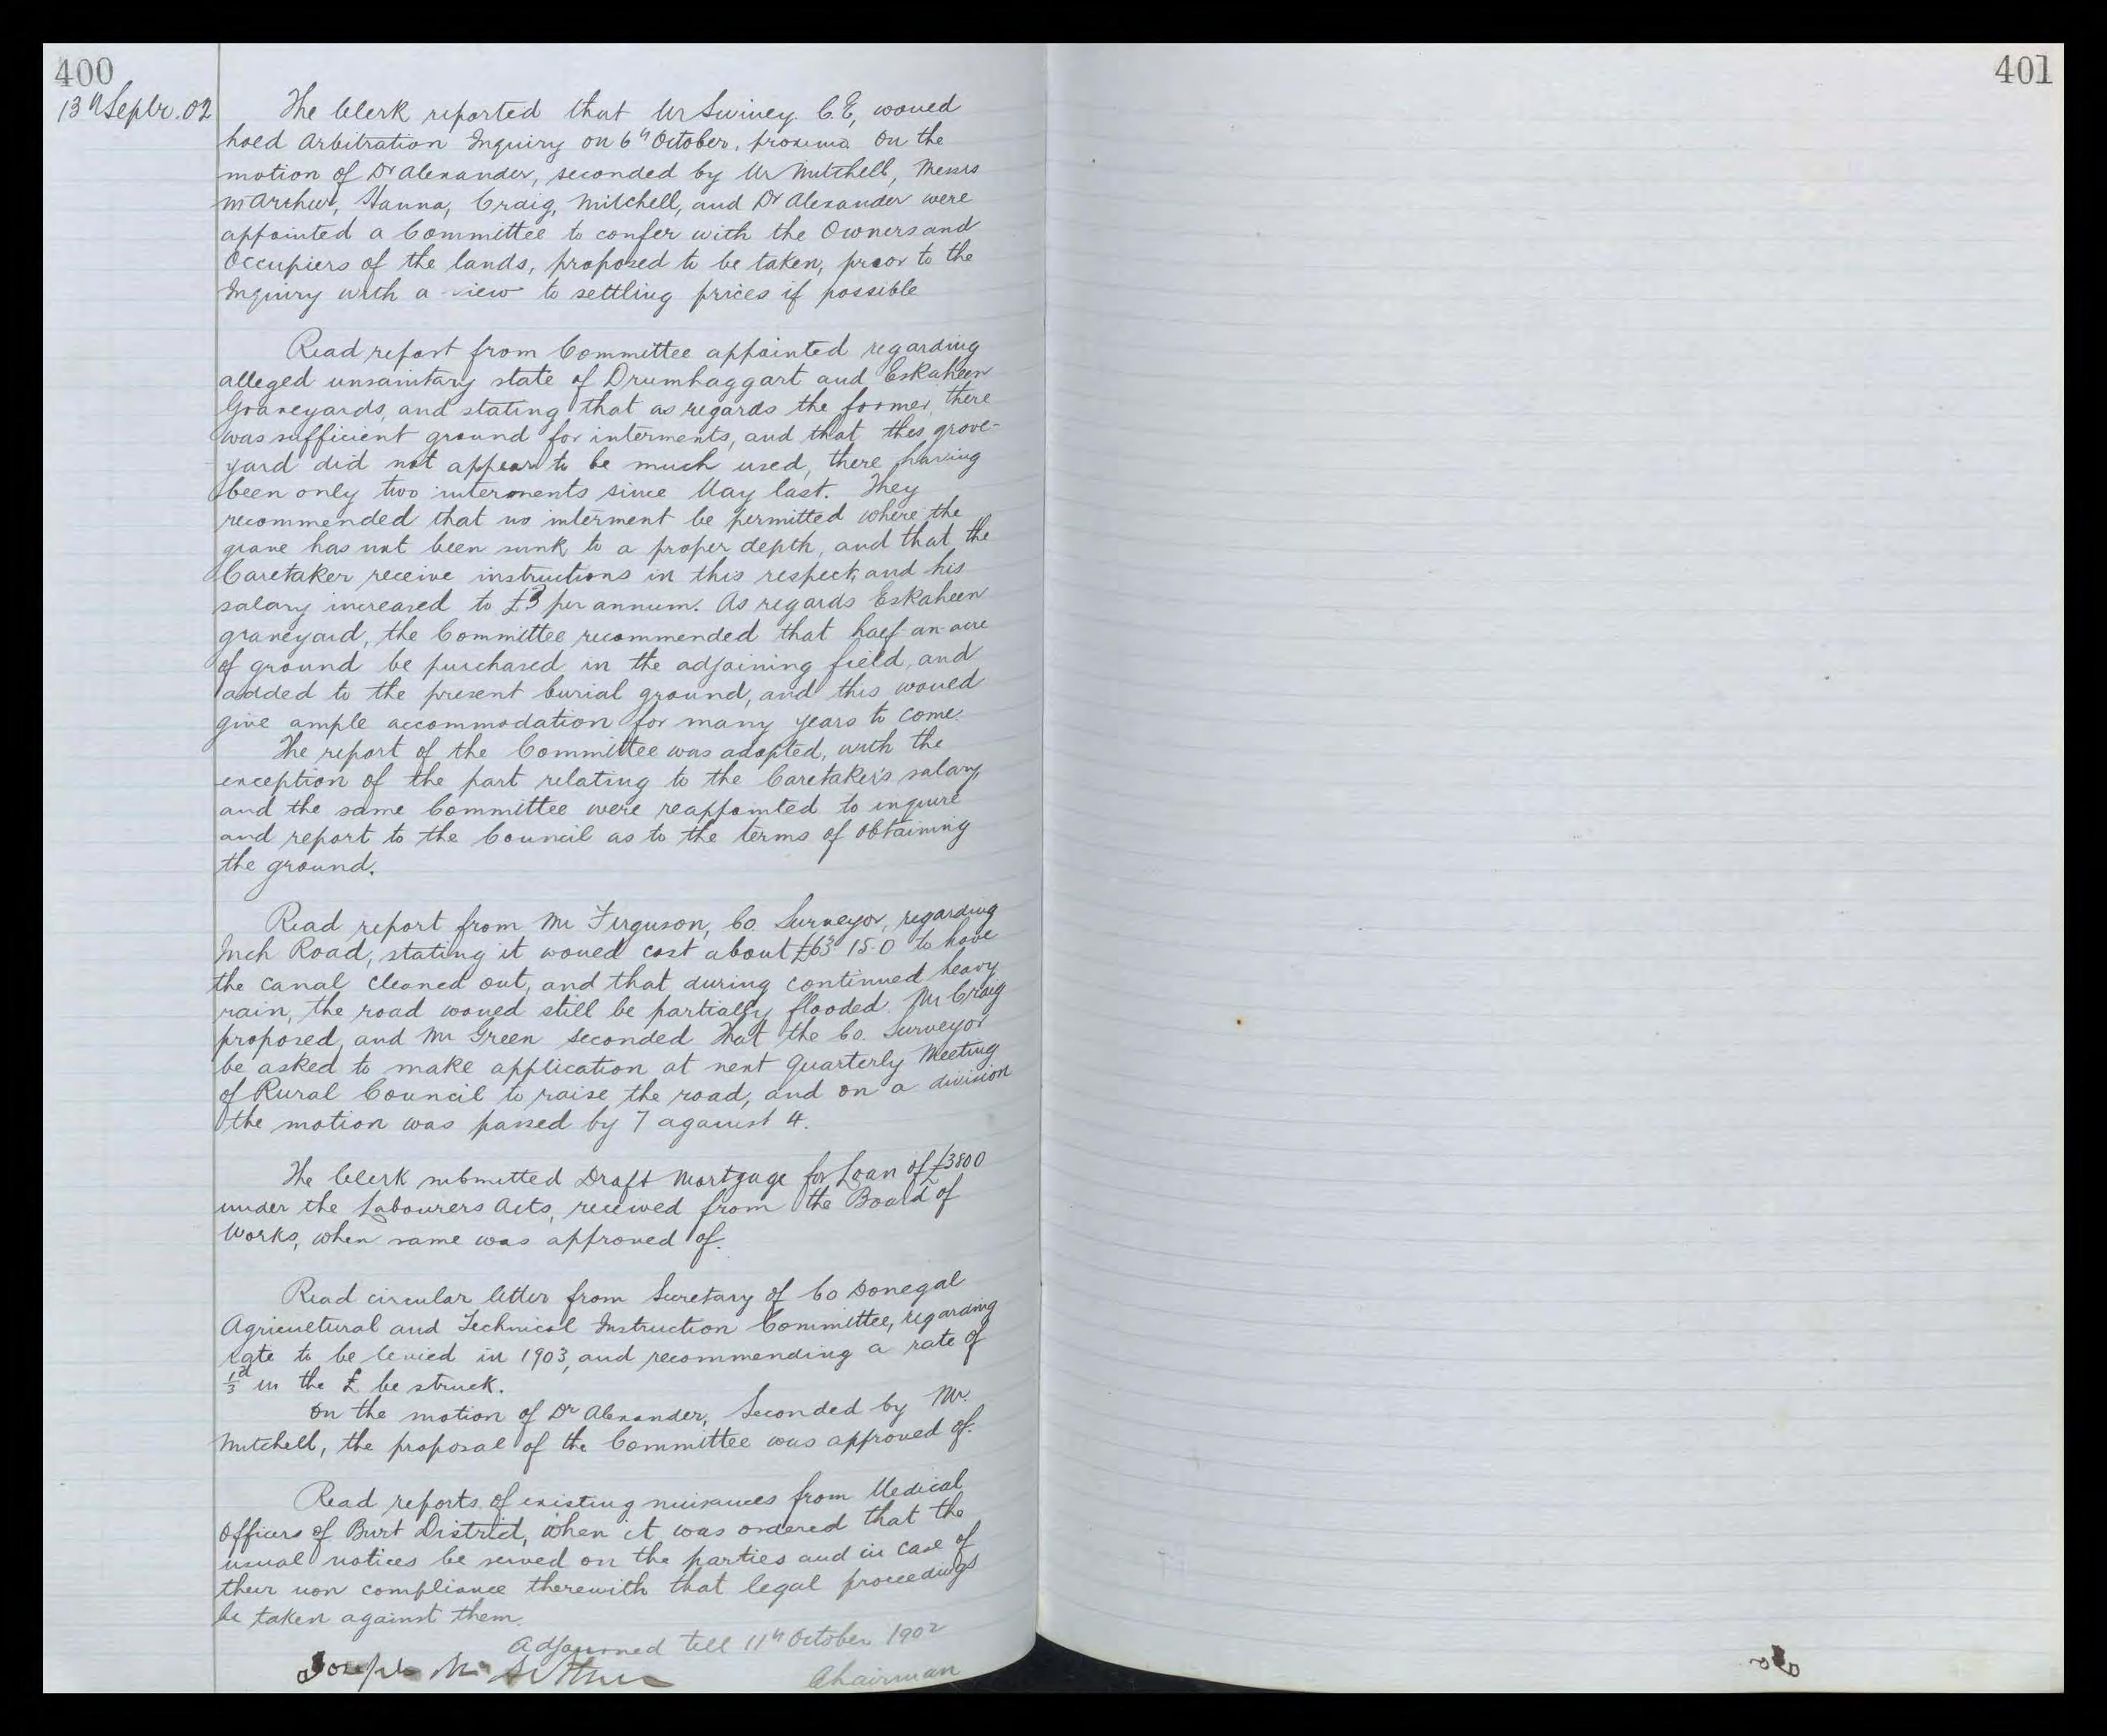 400
401
13th Septr. 02
The Clerk reported that Mr Swiney C.E, would
hold Arbitration Inquiry on 6th October, proximo On the
motion of Dr Alexander, seconded by Mr Mitchell, Messrs
McArthur, Hanna, Craig, Mitchell, and Dr Alexander were
appointed a Committee to confer with the Owners and
Occupiers of the lands, proposed to be taken, prior to the
Inquiry with a view to settling prices if possible
Read report from Committee appointed regarding
alleged unsanitary state of Drumhaggart and Eskaheen
Graveyards, and stating that as regards the former, there
was sufficient ground for interments, and that this grave-
yard did not appear to be much used, there having
been only two interments since May last. They
recommended that no interment be permitted where the
grave has not been sunk to a proper depth, and that the
Caretaker receive instructions in this respect, and his
salary increased to £3 per annum. As regards Eskaheen
graveyard, the Committee recommended that half-an-acre
of ground be purchased in the adjoining field, and
added to the present burial ground, and this would
give ample accommodation for many years to come.
The report of the Committee was adopted, with the
exception of the part relating to the Caretaker's salary,
and the same Committee were reappointed to inquire
and report to the Council as to the terms of obtaining
the ground.
Read report from Mr Ferguson, Co. Surveyor, regarding
Inch Road, stating it would cost about £63-15-0 to have
the canal cleaned out, and that during continued heavy
rain, the road would still be partially flooded. Mr Craig
proposed, and Mr Green seconded That the Co. Surveyor
be asked to make application at next Quarterly Meeting
of Rural Council to raise the road, and on a division
the motion was passed by 7 against 4.
The Clerk submitted Draft Mortgage for Loan of £3800
under the Labourers Acts, received from the Board of
Works, when same was approved of.
Read circular letter from Secretary of Co Donegal
Agricultural and Technical Instruction Committee, regarding
rate to be levied in 1903, and recommending a rate of
1/3d in the £ be struck.
On the motion of Dr Alexander, Seconded by Mr.
Mitchell, the proposal of the Committee was approved of.
Read reports of existing nuisances from Medical
Officers of Burt District, when it was ordered that the
usual notices be served on the parties and in case of
their non compliance therewith that legal proceedings
be taken against them.
Adjourned till 11th October 1902
Joseph McArthur Chairman